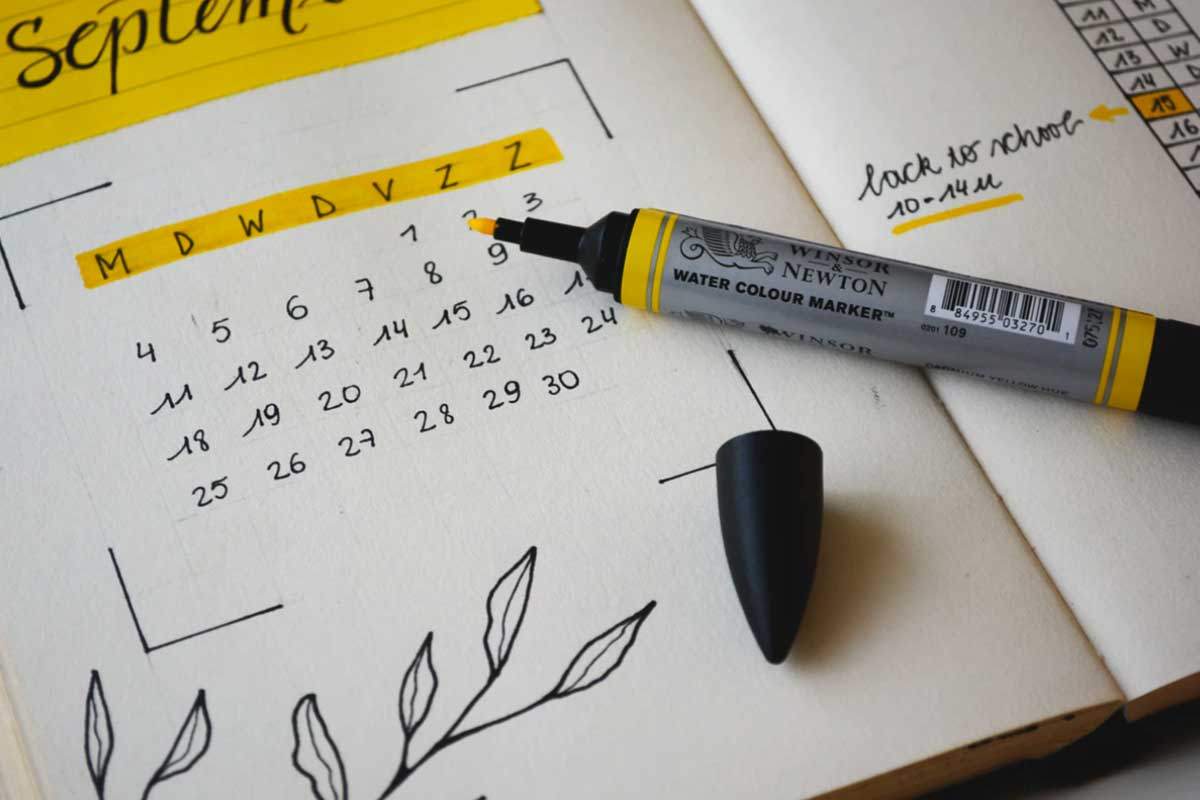 Septem
M D W D V Z Z
1 2 3
4 5 6 7 8 9
11 12 13 14 15 16
18 19 20 21 22 23 24
25 26 27 28 29 30
11 M
12 D
13 W
14 D
15
16
back to school
10-14u
WINSOR
&
NEWTON
WATER COLOUR MARKER™
8 84955 03270 1
0201 109
WINSOR
CADMIUM YELLOW HUE